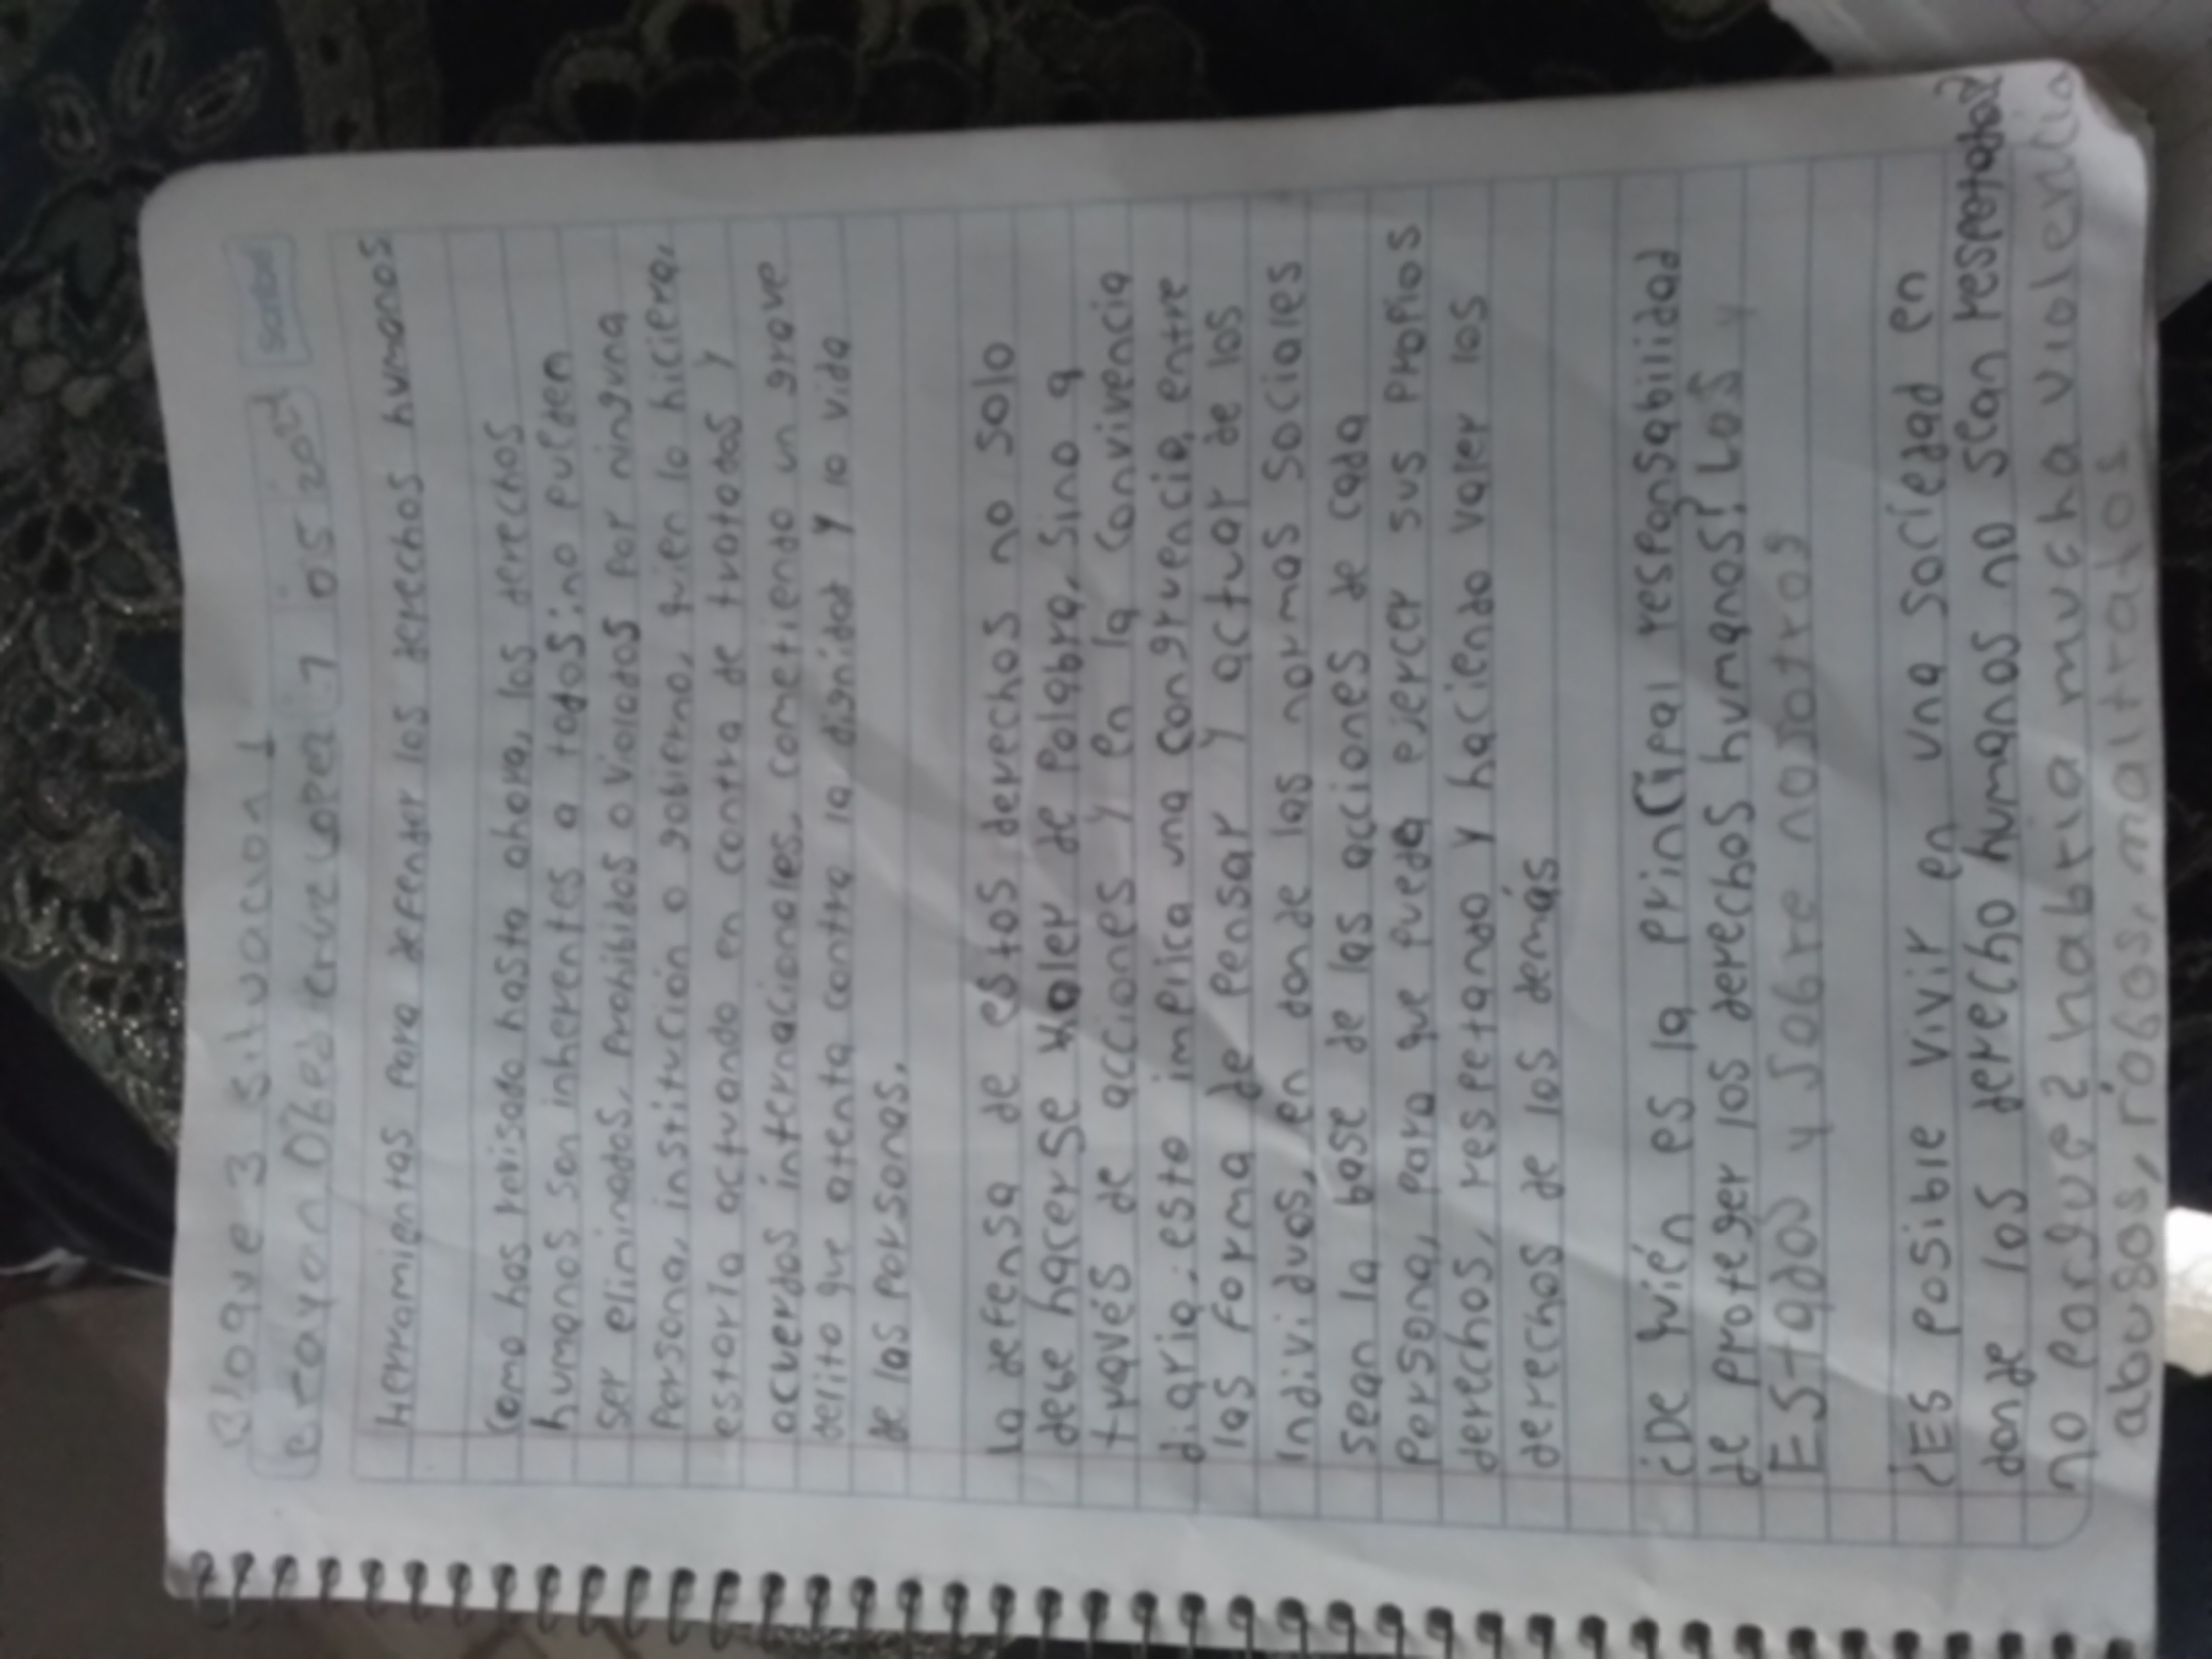 Bloque 3 situacion 1
brayan Obed cruz Lopez 7 05 2021
Scribe
herramientas para defender los derechos humanos
Como has revisado hasta ahora, los derechos
humanos son inherentes a todos; no pueden
ser eliminados, prohibidos o violados por ninguna
persona, institución o gobierno, quien lo hiciera,
estaría actuando en contra de tratados y
acuerdos internacionales, cometiendo un grave
delito que atenta contra la dignidad y la vida
de las personas.
la defensa de estos derechos no solo
debe hacerse valer de palabra, sino a
través de acciones y en la convivencia
diaria; esto implica una congruencia entre
las forma de pensar y actuar de los
individuos, en donde las normas sociales
sean la base de las acciones de cada
persona, para que pueda ejercer sus propios
derechos, respetando y haciendo valer los
derechos de los demás
¿De quién es la principal responsabilidad
de proteger los derechos humanos? Los y
Estados y sobre nosotros
¿Es posible vivir en una sociedad en
donde los derecho humanos no sean respetados?
no porque? habria mucha violencia
abusos, robos, maltratos